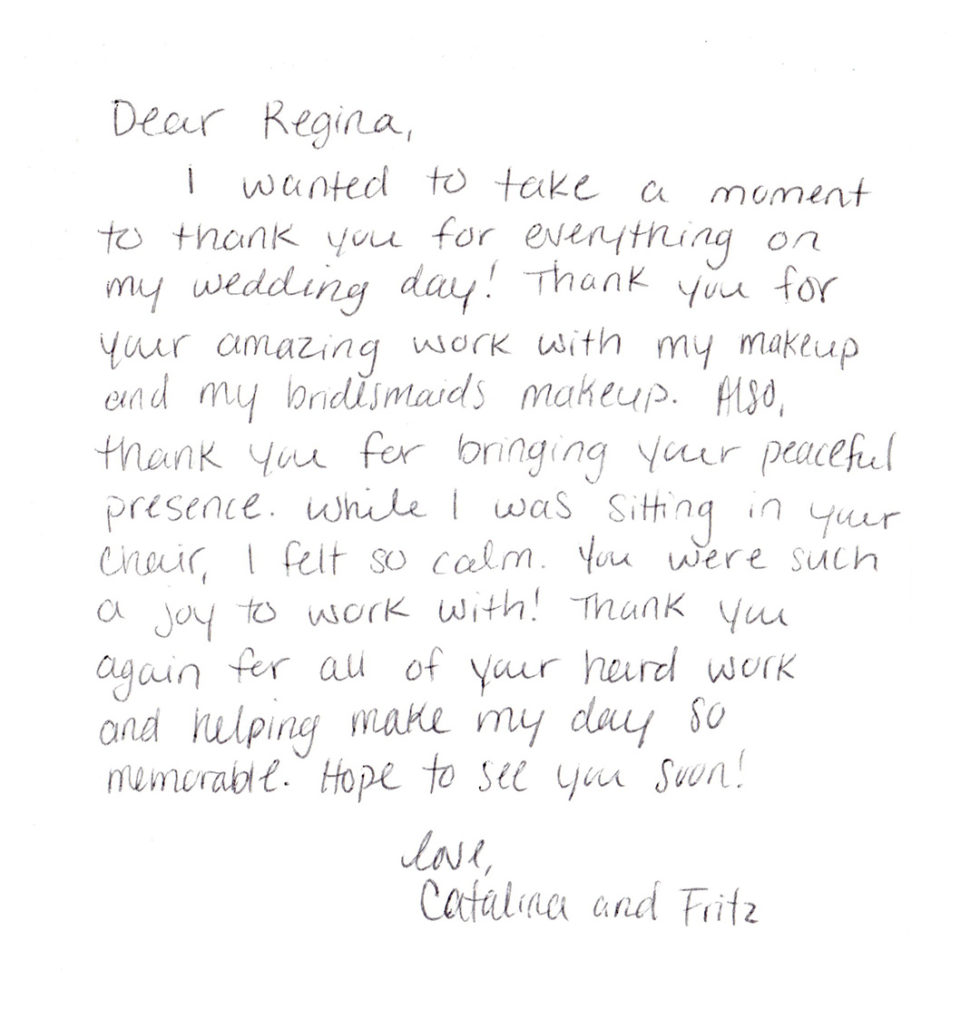 Dear Regina,
I wanted to take a moment
to thank you for everything on
my wedding day! Thank you for
your amazing work with my makeup
and my bridesmaids makeup. Also,
thank you for bringing your peaceful
presence. While I was sitting in your
chair, I felt so calm. You were such
a joy to work with! Thank you
again for all of your hard work
and helping make my day so
memorable. Hope to see you soon!
love,
Catalina and Fritz